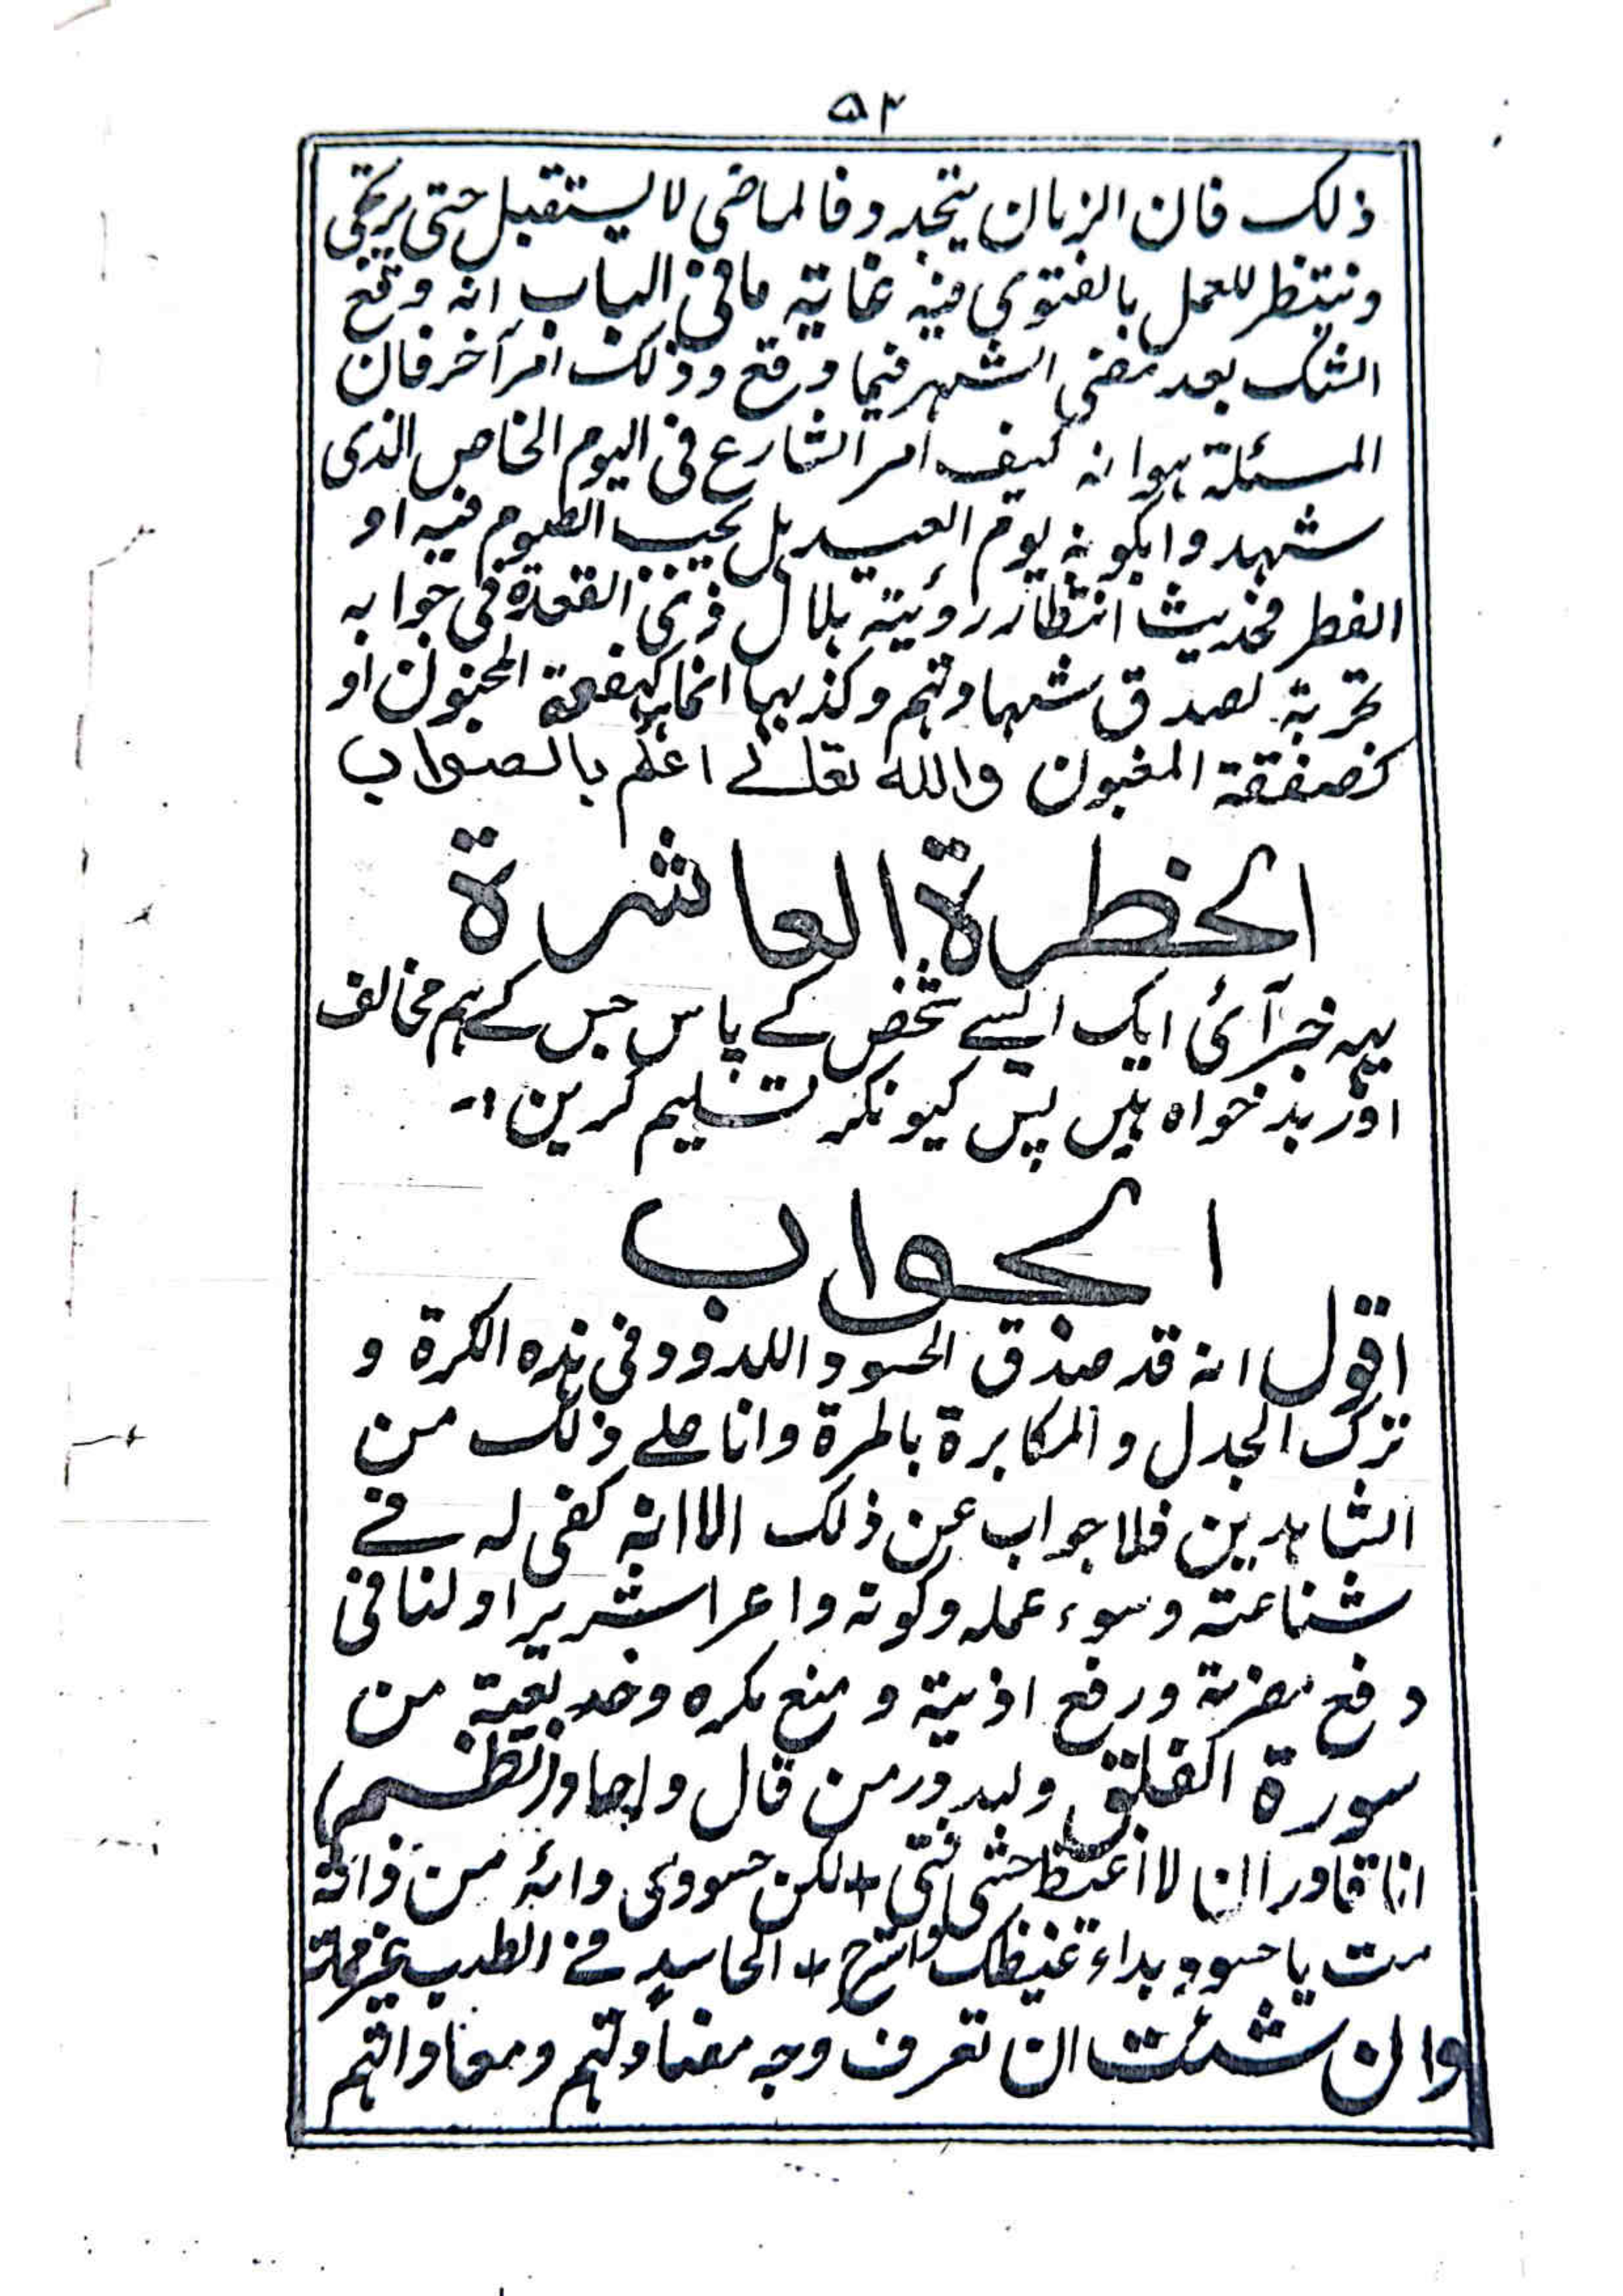 ۵۲
ذلك فان الزمان يتجدد فالماضى لا يستقبل حتى يرتجى
وينتظر للعمل بالفتوى فيه غاية ما فى الباب انه وقع
الشك بعد مضى الشهر فيما وقع وذلك امر آخر فان
المسئلة هو انه كيف امر الشارع فى اليوم الخاص الذى
شهدوا بكونه يوم العيد هل يجب الصوم فيه او
الفطر فحديث انتظار روئية هلال ذى القعدة فى جوابه
تجربة لصدق شهادتهم وكذبها انما هو كيفعة المجنون او
كصفقة المغبون والله تعالے اعلم بالصواب
الخطرة العاشرة
يہ خبر آئی ایک ایسے شخص کے پاس جس کے ہم مخالف
اور بدخواہ ہیں پس کیونکر تسلیم کرین ۔
الجواب
اقول انه قد صدق الحسود اللدود فى هذه الكرة و
ترك الجدل والمكابرة بالمرة وانا علے ذلك من
الشاهدين فلا جواب عن ذلك الا انه كفى له فے
شناعته وسوء عمله وكونه واعرا شريرا ولنا فى
دفع مضرته ورفع اذيته ومنع مكره وخديعته من
سورة الفلق ولله در من قال واجاد (نظم)
انا قادر ان لا اغيظ حشى فتى + لكن حسودى دائه من ذاته
مت يا حسود بداء غيظك واسترح + الحاسد فے الطب
وان شئت ان تعرف وجه مضادتهم ومعاداتهم